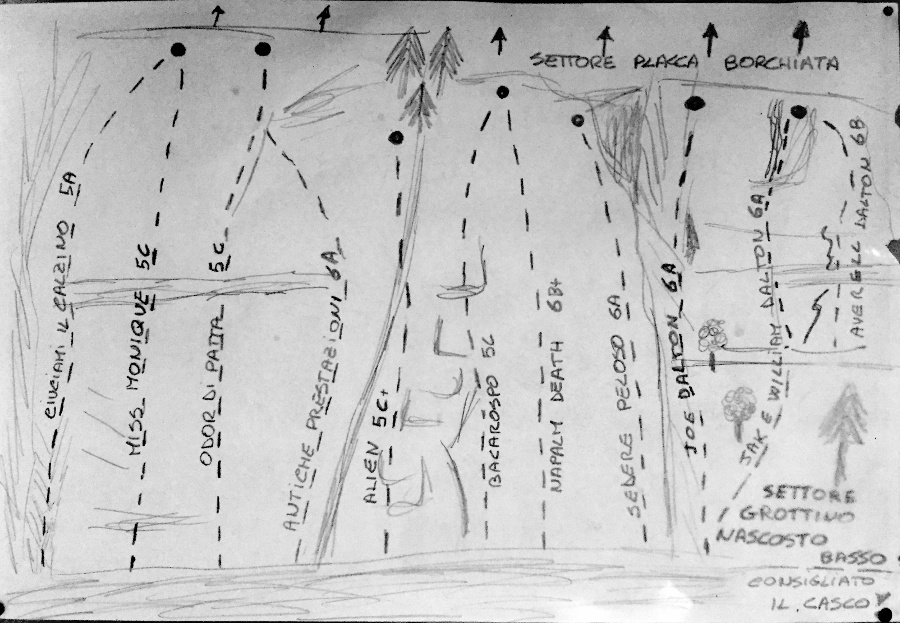 SETTORE PLACCA BORCHIATA
CIUCIAMI IL CALZINO 5A
MISS MONIQUE 5C
ODOR DI PATTA 5C
ANTICHE PRESTAZIONI 6A
ALIEN 5C+
BACAROSPO 5C
NAPALM DEATH 6B+
SEDERE PELOSO 6A
JOE DALTON 6A
JAK E WILLIAM DALTON 6A
AVERELL DALTON 6B
SETTORE
GROTTINO
NASCOSTO
BASSO
CONSIGLIATO
IL CASCO